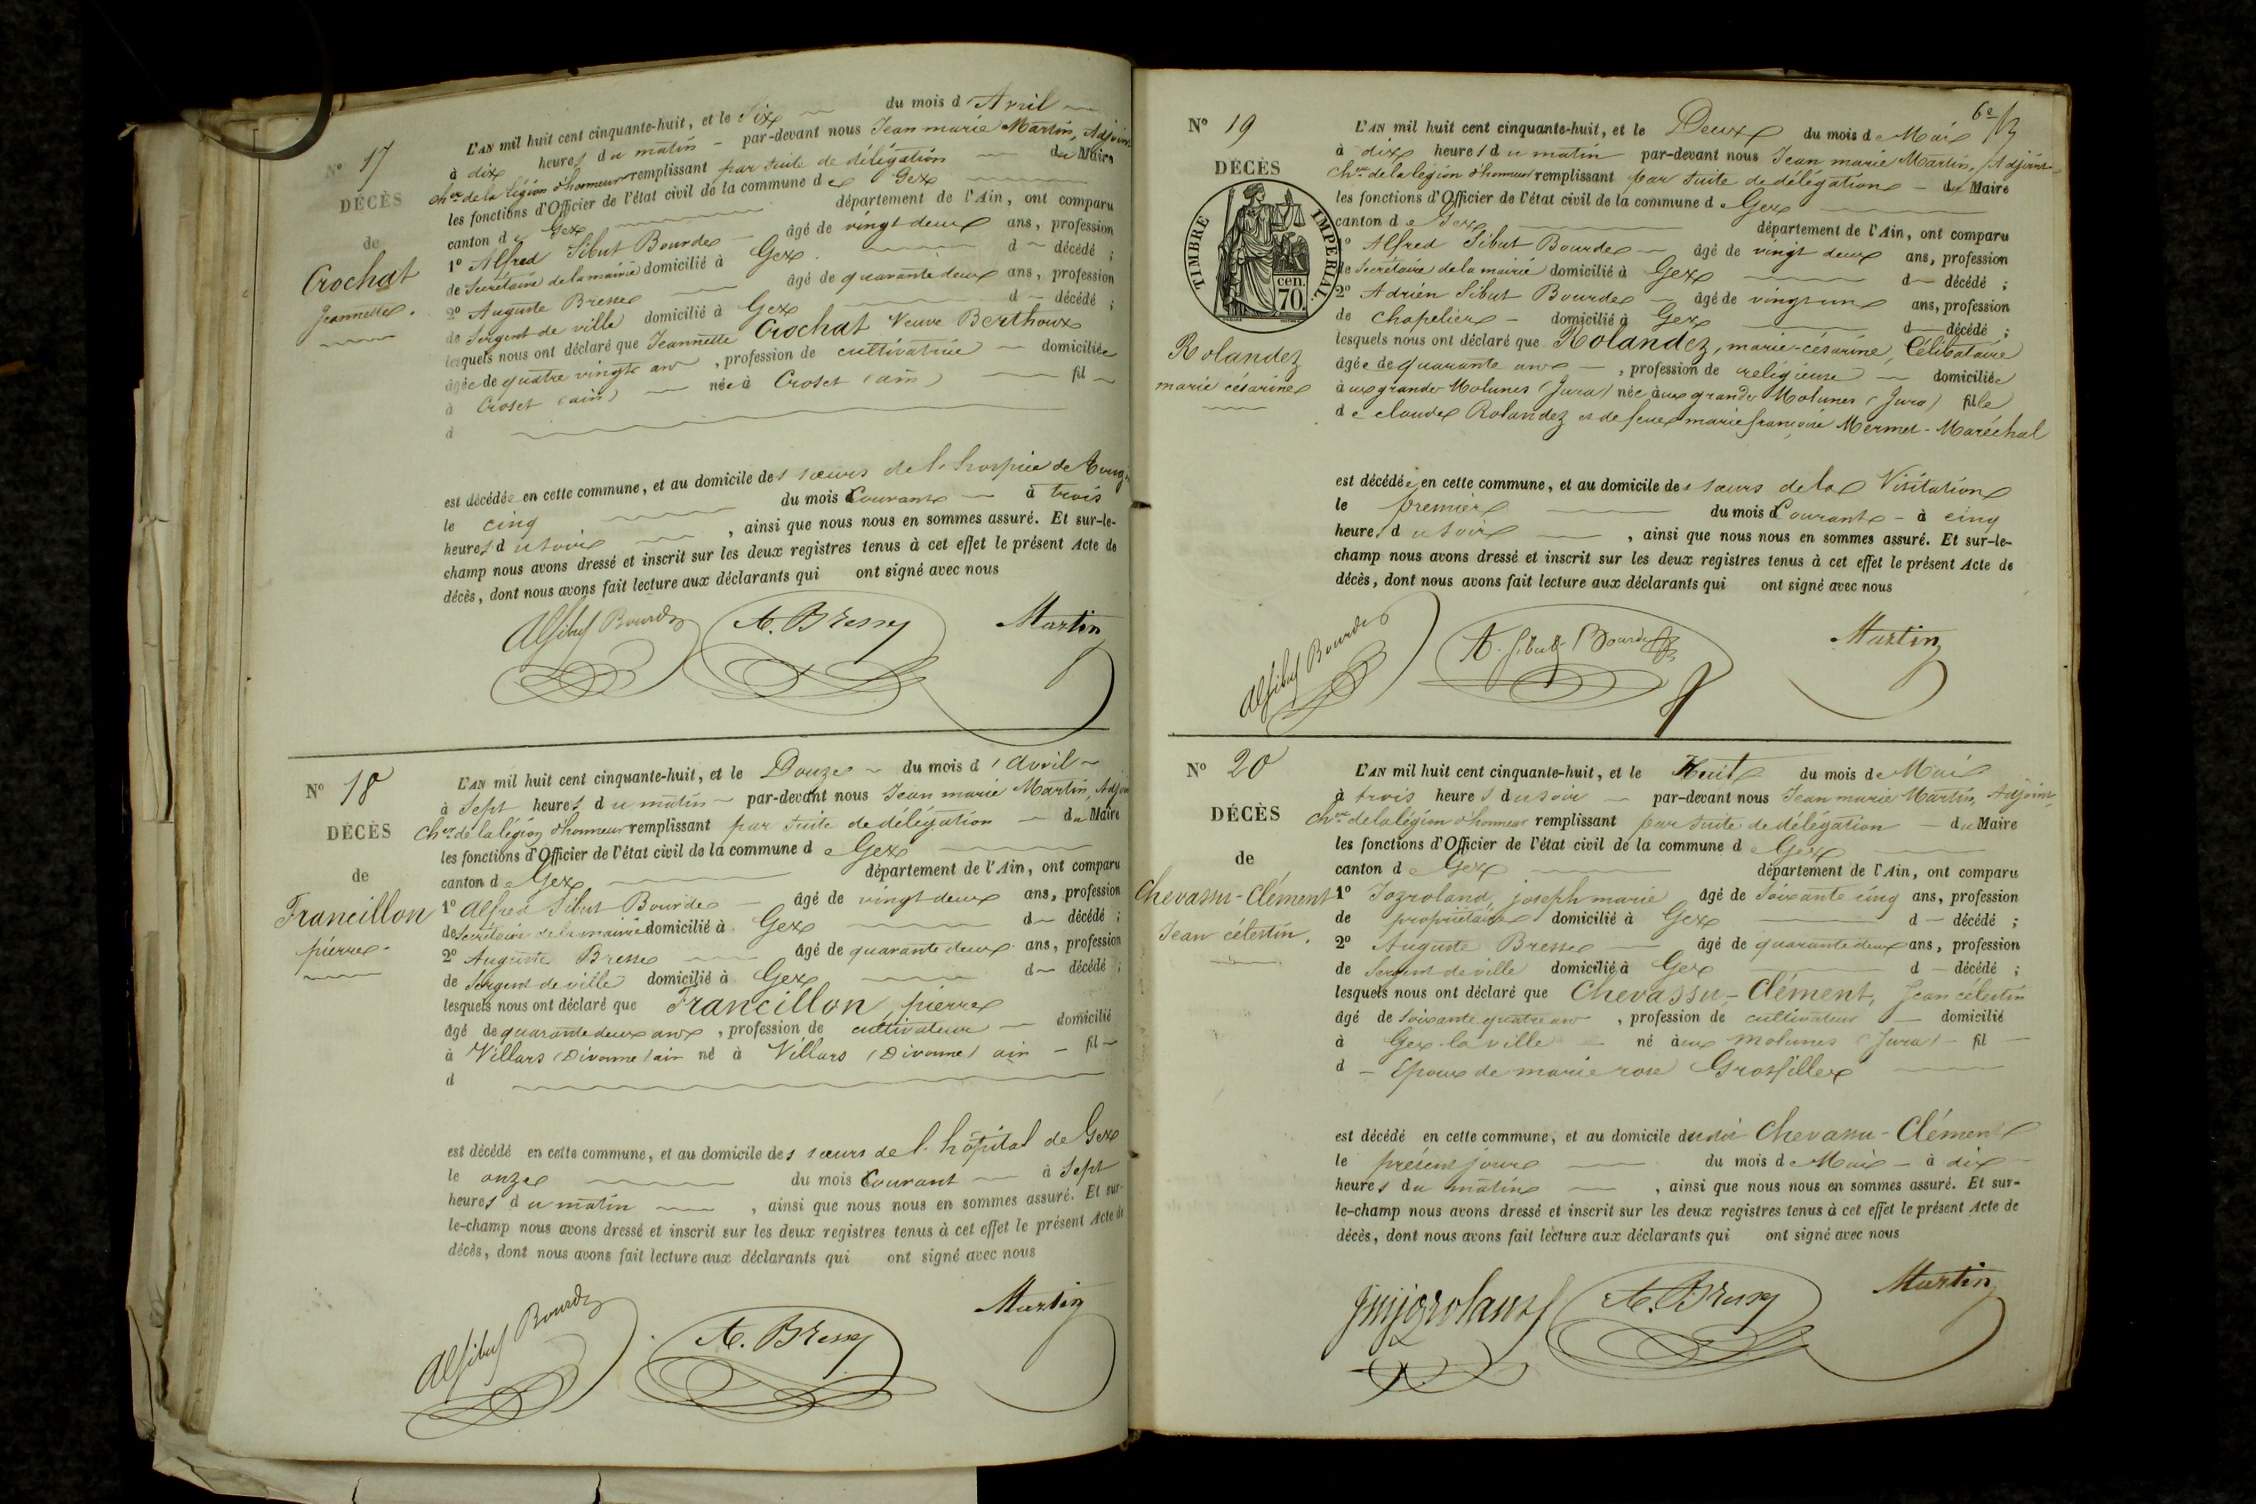 N° 17
DÉCÈS
de
Crochat
Jeannette.
L'AN mil huit cent cinquante-huit, et le Six du mois d'Avril
à dix heures du matin - par-devant nous Jean marie Martin, Adjoint
ch.er de la Légion d'honneur remplissant par suite de délégation du Maire
les fonctions d'Officier de l'état civil de la commune de Gex
canton de Gex département de l'Ain, ont comparu
1° Alfred Sibut Bourde âgé de vingt deux ans, profession
de Secrétaire de la mairie domicilié à Gex. d décédé ;
2° Auguste Bresse âgé de quarante deux ans, profession
de Sergent de ville domicilié à Gex d décédé ;
lesquels nous ont déclaré que Jeannette Crochat Veuve Berthoux
âgée de quatre vingts ans, profession de cultivatrice domiciliée
à Croset (ain) née à Croset (ain) fil
d
est décédée en cette commune, et au domicile des sœurs de l'hospice de
le cinq du mois Courant à trois
heures du soir, ainsi que nous nous en sommes assuré. Et sur-le-
champ nous avons dressé et inscrit sur les deux registres tenus à cet effet le présent Acte de
décès, dont nous avons fait lecture aux déclarants qui ont signé avec nous
Al Sibut Bourde A. Bresse Martin
N° 18
DÉCÈS
de
Francillon
pierre.
L'AN mil huit cent cinquante-huit, et le Douze du mois d'avril
à Sept heures du matin par-devant nous Jean marie Martin, Adjoint
Ch.er de la légion d'honneur remplissant par suite de délégation du Maire
les fonctions d'Officier de l'état civil de la commune de Gex
canton de Gex département de l'Ain, ont comparu
1° Alfred Sibut Bourde âgé de vingt deux ans, profession
de Secrétaire de la mairie domicilié à Gex d décédé ;
2° Auguste Bresse âgé de quarante deux ans, profession
de Sergent de ville domicilié à Gex d décédé ;
lesquels nous ont déclaré que Francillon, pierre
âgé de quarante deux ans, profession de cultivateur domicilié
à Villars (Divonne) ain né à Villars (Divonne) ain - fil
d
est décédé en cette commune, et au domicile des sœurs de l'hôpital de Gex
le onze du mois Courant à Sept
heures du matin, ainsi que nous nous en sommes assuré. Et sur-
le-champ nous avons dressé et inscrit sur les deux registres tenus à cet effet le présent Acte de
décès, dont nous avons fait lecture aux déclarants qui ont signé avec nous
Al Sibut Bourde A. Bresse Martin
N° 19
DÉCÈS
TIMBRE IMPERIAL.
70 cen.
Rolandez
marie césarine
L'AN mil huit cent cinquante-huit, et le Deux du mois de Mai
à dix heures du matin par-devant nous Jean marie Martin, Adjoint
Ch.er de la légion d'honneur remplissant par suite de délégation du Maire
les fonctions d'Officier de l'état civil de la commune de Gex
canton de Gex département de l'Ain, ont comparu
1° Alfred Sibut Bourde âgé de vingt deux ans, profession
de Secrétaire de la mairie domicilié à Gex d décédé ;
2° Adrien Sibut Bourde âgé de vingt un ans, profession
de chapelier domicilié à Gex d décédé ;
lesquels nous ont déclaré que Rolandez, marie-césarine, Célibataire
âgée de quarante ans, profession de religieuse domiciliée
à aux grandes Molunes (Jura) née à aux grandes Molunes (Jura) fille
de claude Rolandez et de feue marie françoise Mermet-Maréchal
est décédée en cette commune, et au domicile des sœurs de la Visitation
le premier du mois Courant - à cinq
heures du soir, ainsi que nous nous en sommes assuré. Et sur-le-
champ nous avons dressé et inscrit sur les deux registres tenus à cet effet le présent Acte de
décès, dont nous avons fait lecture aux déclarants qui ont signé avec nous
Al Sibut Bourde A. Sibut Bourde Martin
N° 20
DÉCÈS
de
Chevassu-Clément
Jean célestin.
L'AN mil huit cent cinquante-huit, et le Huit du mois de Mai
à trois heures du soir par-devant nous Jean marie Martin, Adjoint
Ch.er de la légion d'honneur remplissant par suite de délégation du Maire
les fonctions d'Officier de l'état civil de la commune de Gex
canton de Gex département de l'Ain, ont comparu
1° Jozroland, joseph marie âgé de Soixante cinq ans, profession
de propriétaire domicilié à Gex d décédé ;
2° Auguste Bresse âgé de quarante deux ans, profession
de Sergent de ville domicilié à Gex d décédé ;
lesquels nous ont déclaré que Chevassu-Clément, Jean célestin
âgé de Soixante quatre ans, profession de cultivateur domicilié
à Gex-la-ville né à aux Molunes (Jura) - fil
d - Epoux de marie rose Grosfillex
est décédé en cette commune, et au domicile dudit Chevassu-Clément
le présent jour du mois de Mai - à dix
heures du matin, ainsi que nous nous en sommes assuré. Et sur-
le-champ nous avons dressé et inscrit sur les deux registres tenus à cet effet le présent Acte de
décès, dont nous avons fait lecture aux déclarants qui ont signé avec nous
jmjozroland A. Bresse Martin